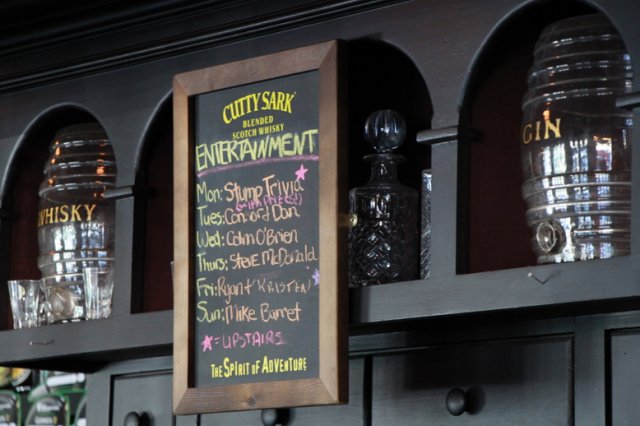 CUTTY SARK
BLENDED
SCOTCH WHISKY
ENTERTAINMENT
Mon: Stump Trivia
(with prizes!)
Tues: Conor + Dan
Wed: Colin O'Brien
Thurs: Steve McDonald
Fri: Ryan + KRISTEN
Sun: Mike Barnet
= UPSTAIRS
THE SPIRIT OF ADVENTURE
WHISKY
GIN